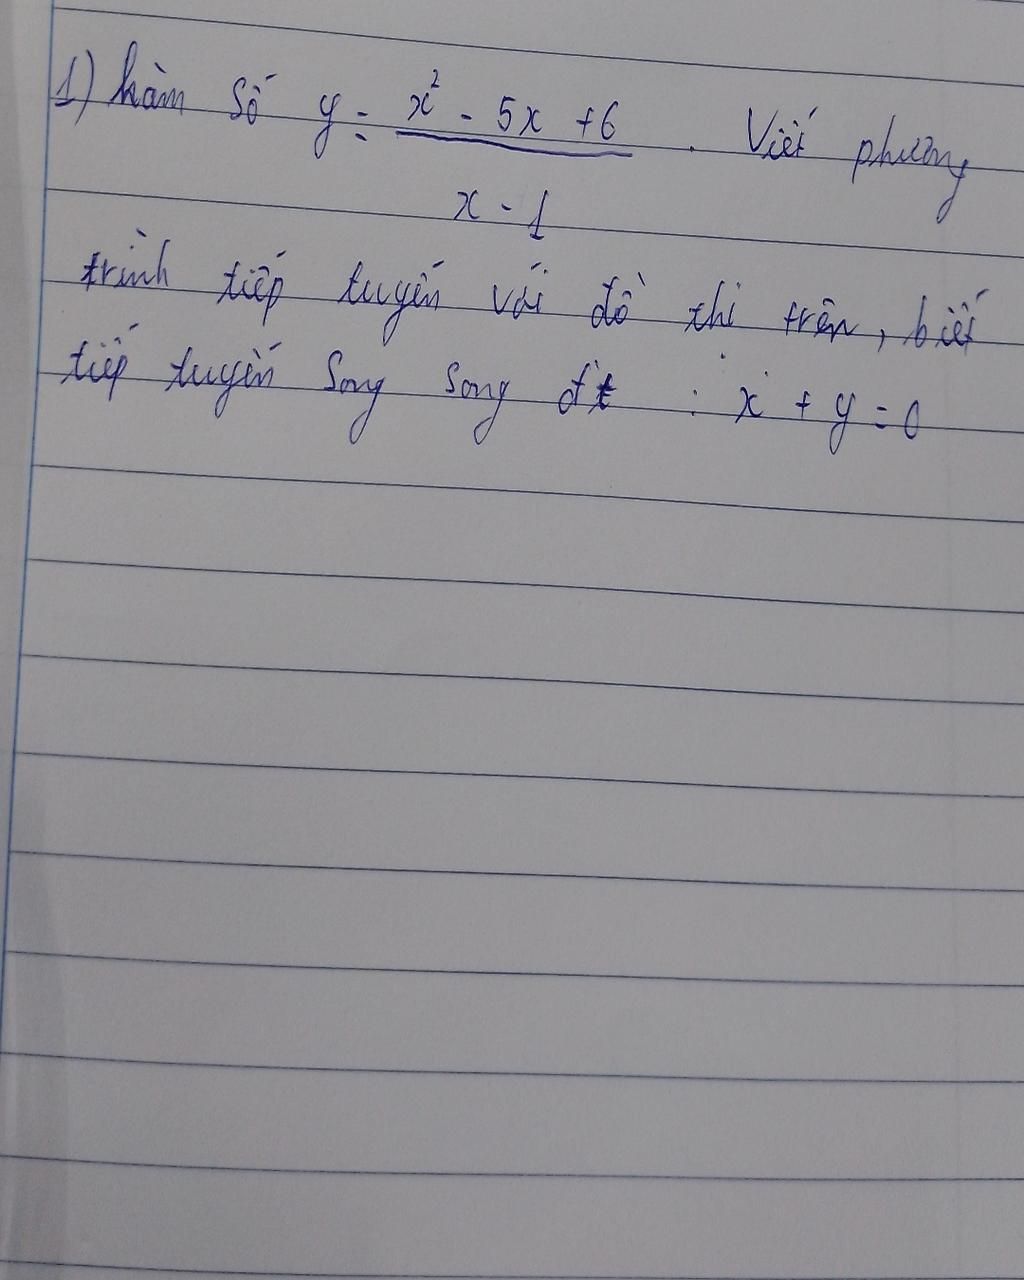 1) hàm số y = x² - 5x + 6 . Viết phương
x - 1
trình tiếp tuyến với đồ thi trên, biết
tiếp tuyến song song đt : x + y = 0